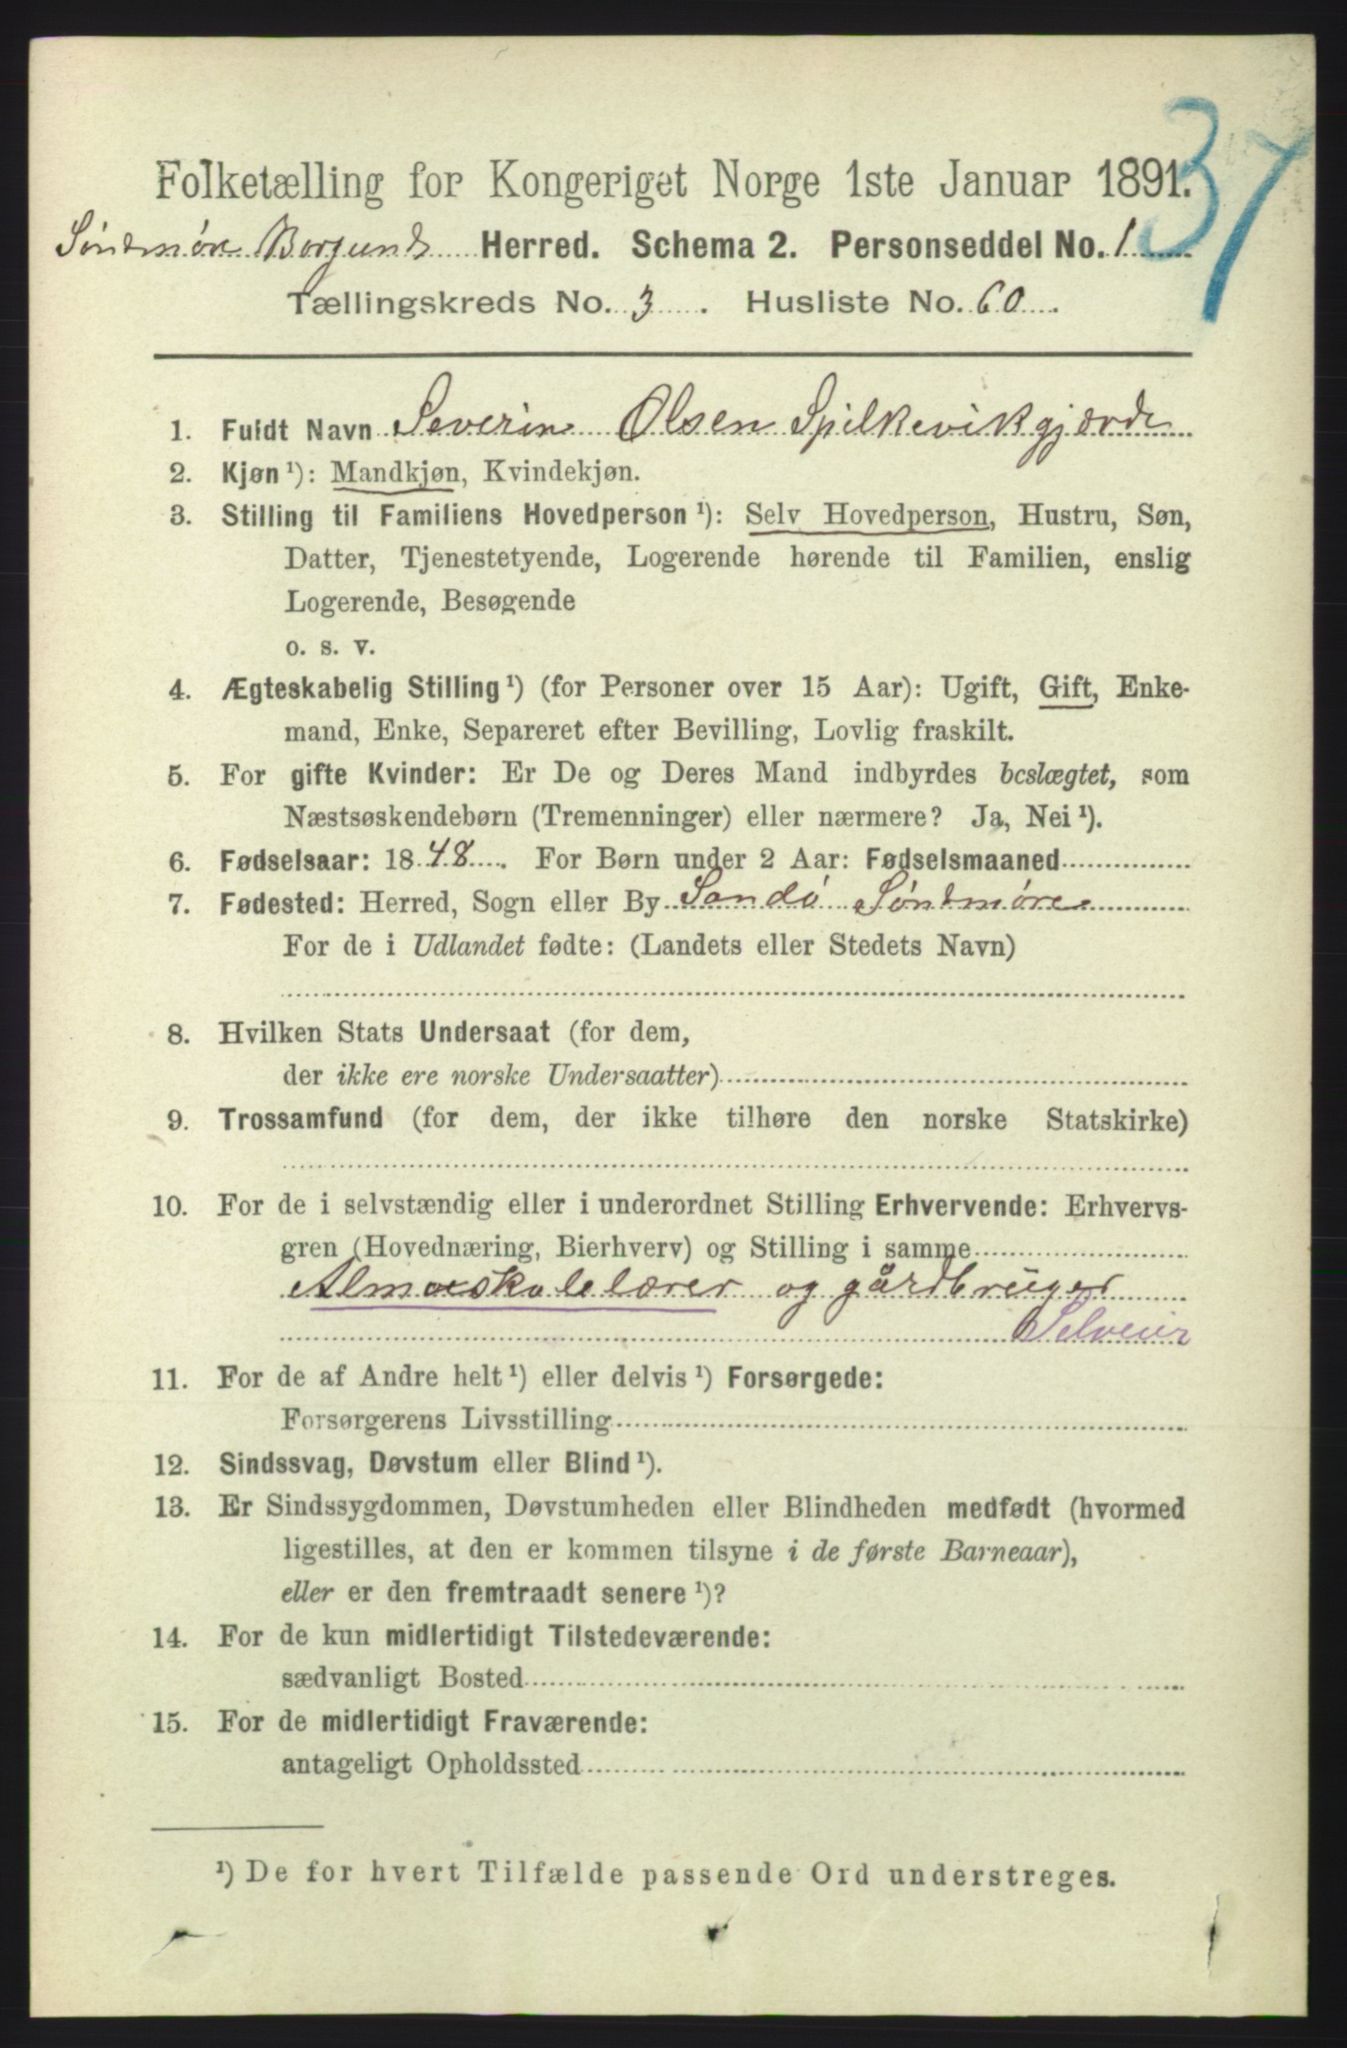 37
Folketælling for Kongeriget Norge 1ste Januar 1891.
Søndmøre Borgund Herred. Schema 2. Personseddel No. 1
Tællingskreds No. 3. Husliste No. 60.
1. Fuldt Navn Severin Olsen Spilkevikgjærde
2. Kjøn ¹): Mandkjøn, Kvindekjøn.
3. Stilling til Familiens Hovedperson ¹): Selv Hovedperson, Hustru, Søn,
Datter, Tjenestetyende, Logerende hørende til Familien, enslig
Logerende, Besøgende
o. s. v.
4. Ægteskabelig Stilling ¹) (for Personer over 15 Aar): Ugift, Gift, Enke-
mand, Enke, Separeret efter Bevilling, Lovlig fraskilt.
5. For gifte Kvinder: Er De og Deres Mand indbyrdes beslægtet, som
Næstsøskendebørn (Tremenninger) eller nærmere? Ja, Nei ¹).
6. Fødselsaar: 1848. For Børn under 2 Aar: Fødselsmaaned
7. Fødested: Herred, Sogn eller By Sandø Søndmøre
For de i Udlandet fødte: (Landets eller Stedets Navn)
8. Hvilken Stats Undersaat (for dem,
der ikke ere norske Undersaatter)
9. Trossamfund (for dem, der ikke tilhøre den norske Statskirke)
10. For de i selvstændig eller i underordnet Stilling Erhvervende: Erhvervs-
gren (Hovednæring, Bierhverv) og Stilling i samme
Almueskolelærer og gårdbruger
Selveier
11. For de af Andre helt ¹) eller delvis ¹) Forsørgede:
Forsørgerens Livsstilling
12. Sindssvag, Døvstum eller Blind ¹).
13. Er Sindssygdommen, Døvstumheden eller Blindheden medfødt (hvormed
ligestilles, at den er kommen tilsyne i de første Barneaar),
eller er den fremtraadt senere ¹)?
14. For de kun midlertidigt Tilstedeværende:
sædvanligt Bosted
15. For de midlertidigt Fraværende:
antageligt Opholdssted
¹) De for hvert Tilfælde passende Ord understreges.